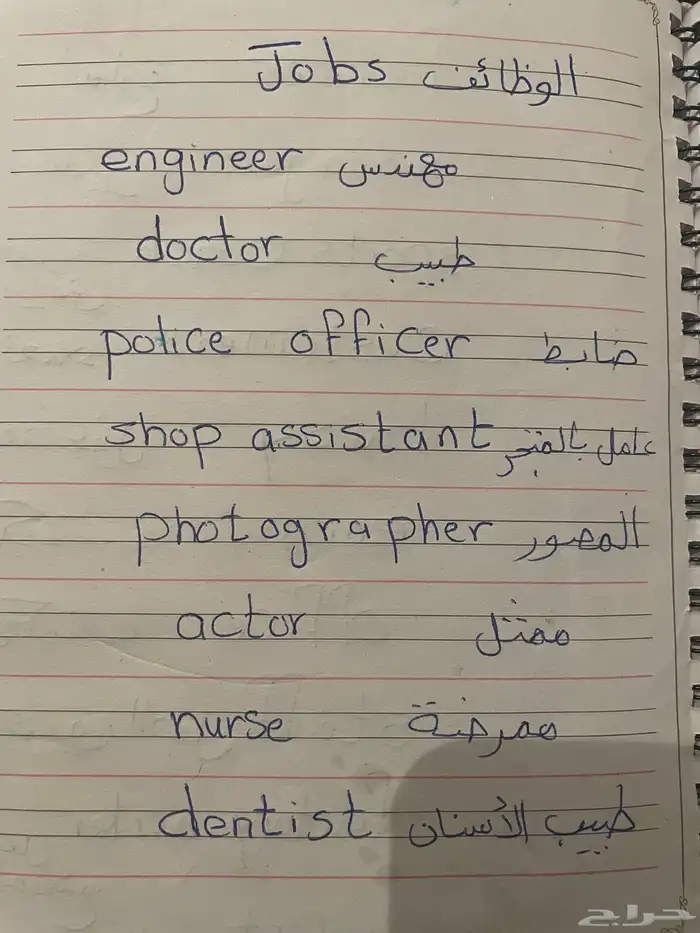 Jobs الوظائف
engineer مهندس
doctor طبيب
police officer ضابط
shop assistant عامل بالمتجر
photographer المصور
actor ممثل
nurse ممرضة
dentist طبيب الأسنان
حراج